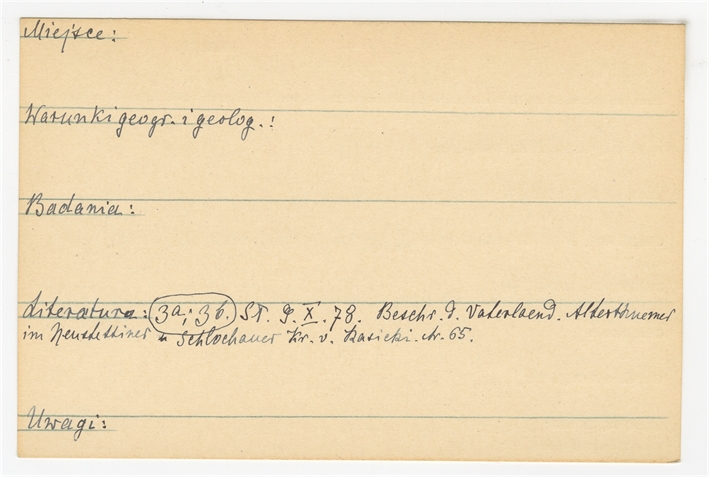 Miejsce:
Warunki geogr. i geolog.:
Badania:
Literatura: 3a; 3b. ST. G. X. 78. Beschr. d. Vaterlaend. Alterthuemer
im Neustettiner u Schlochauer Kr. v. Kasicki. Nr. 65.
Uwagi: